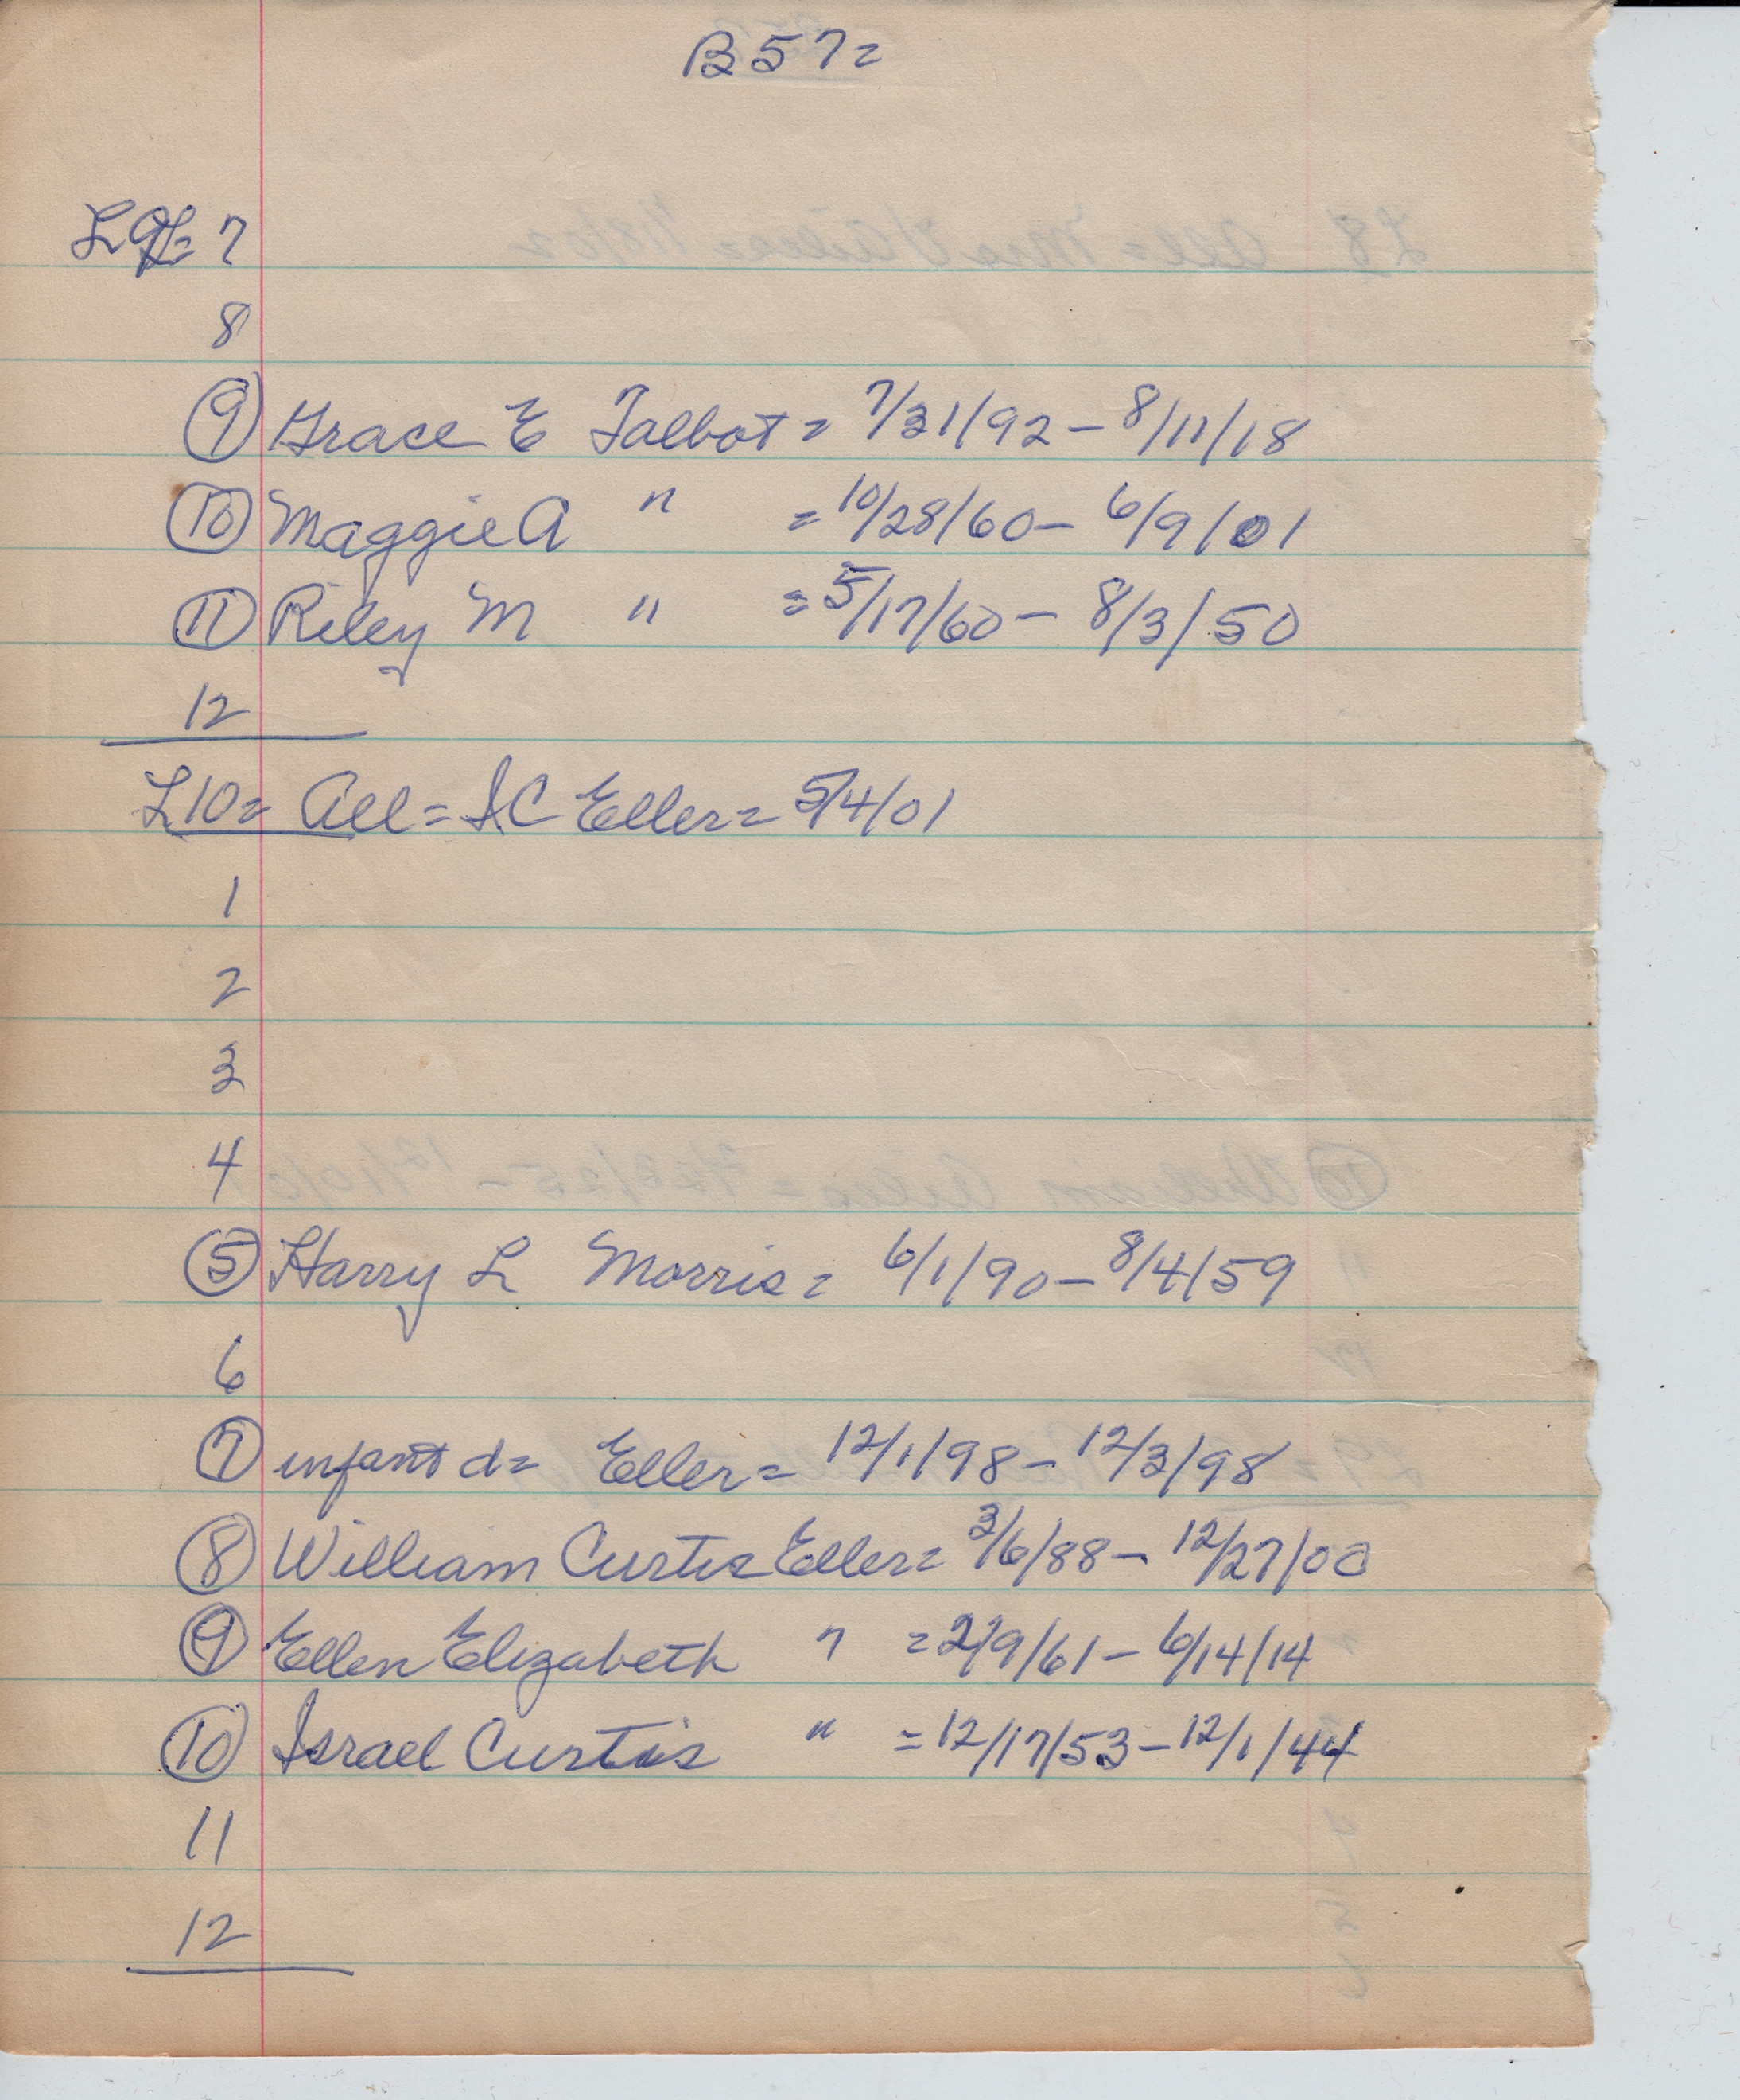 B57=
L9= 7
8
9 Grace E Talbot = 7/31/92 - 8/11/18
10 Maggie A " = 10/28/60 - 6/9/01
11 Riley M " = 5/17/60 - 8/3/50
12
L10= All = I C Eller = 5/4/01
1
2
3
4
5 Harry L Morris = 6/1/90 - 8/4/59
6
7 infant d= Eller = 12/1/98 - 12/3/98
8 William Curtis Eller = 3/6/88 - 12/27/00
9 Ellen Elizabeth " = 2/9/61 - 6/14/14
10 Israel Curtis " = 12/17/53 - 12/1/44
11
12